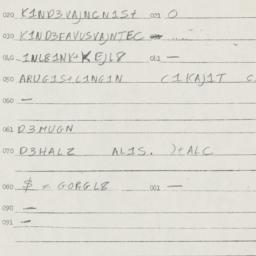 020 K1ND3VAJNCN1S+ 001 O
030 K1ND3FAVUSVAJNTEC
040 1NLE1NK+KEJL8 011 —
050 ARUG1S+L1NG1N C1KAJ1T
060 —
061 D3MUGN
070 D3HALZ AL1S. )+ALC
080 $ ≠ GORGL8 001 —
090 —
091 —